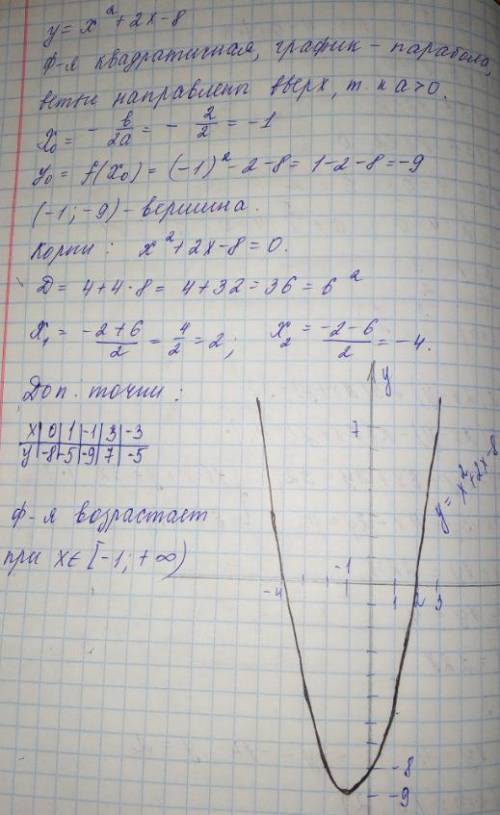 y = x² + 2x - 8
Ф-я квадратичная, график - парабола,
ветви направлены вверх, т. к a > 0.
x₀ = - b/2a = - 2/2 = -1
y₀ = f(x₀) = (-1)² - 2 - 8 = 1 - 2 - 8 = -9
(-1; -9) - вершина.
Корни: x² + 2x - 8 = 0.
Д = 4 + 4·8 = 4 + 32 = 36 = 6²
x₁ = (-2+6)/2 = 4/2 = 2; x₂ = (-2-6)/2 = -4.
Доп. точки:
x | 0 | 1 | -1 | 3 | -3
y | -8 | -5 | -9 | 7 | -5
Ф-я возрастает
при x ∈ [-1; +∞)
y
7
y = x² + 2x - 8
-1
-4 1 2 3
-8
-9